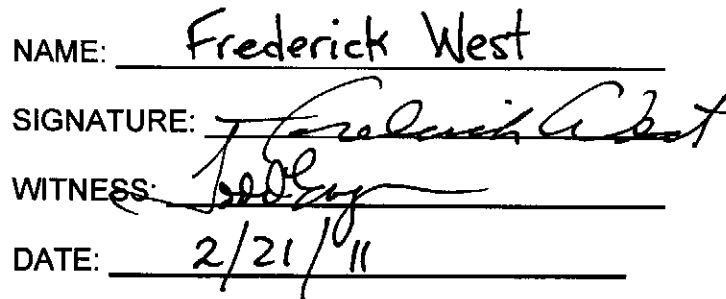 NAME: Frederick West
SIGNATURE: Frederick A West
WITNESS: Todd
DATE: 2/21/11